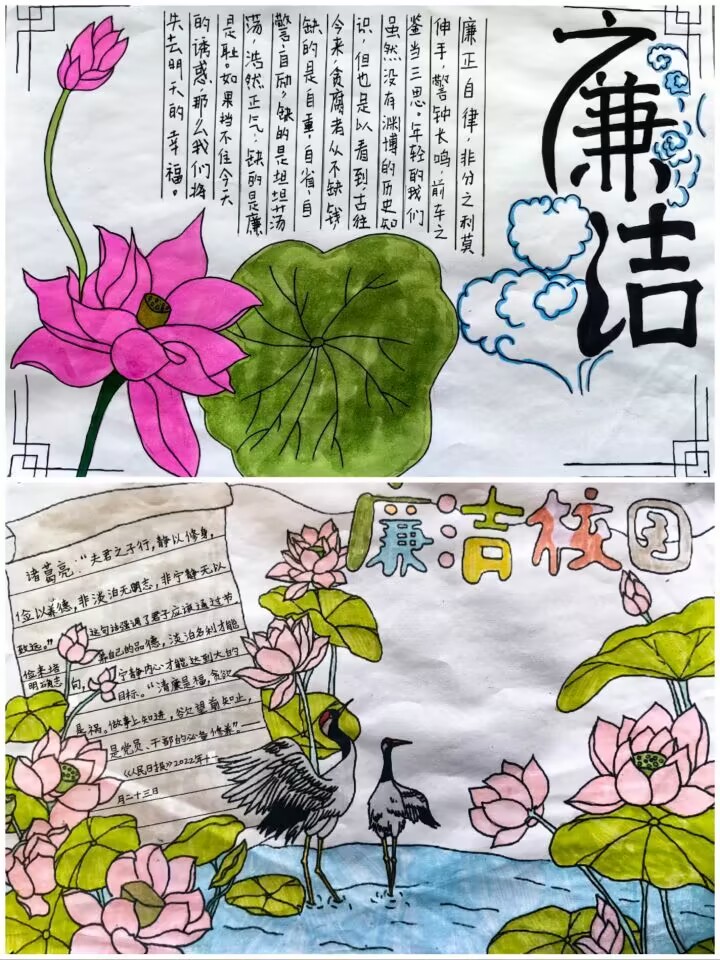 廉洁
廉正自律，非分之利莫
伸手，警钟长鸣，前车之
鉴当三思。年轻的我们
虽然没有渊博的历史知
识，但也是以看到：古往
今来，贪腐者从不缺钱
缺的是自重、自省、自
警、自励；缺的是坦坦荡
荡，浩然正气；缺的是廉
是耻。如果挡不住今天
的诱惑，那么我们将
失去明天的幸福。
廉洁校园
诸葛亮：“夫君之子行，静以修身，
俭以养德，非淡泊无明志，非宁静无以
致远。” 这句话强调了君子应该通过节
俭来培养自己的品德，淡泊名利才能
明确志向，宁静内心才能达到大的
目标。“清廉是福，贪欲
是祸。做事上知进，欲望前知止，
是党员、干部的必备修养。”——
《人民日报》2022年十
月二十三日